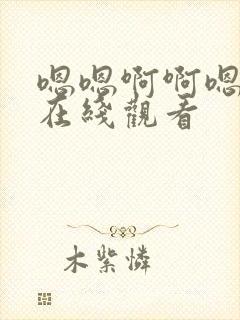 嗯嗯啊啊嗯
在綫觀看
木紫憐